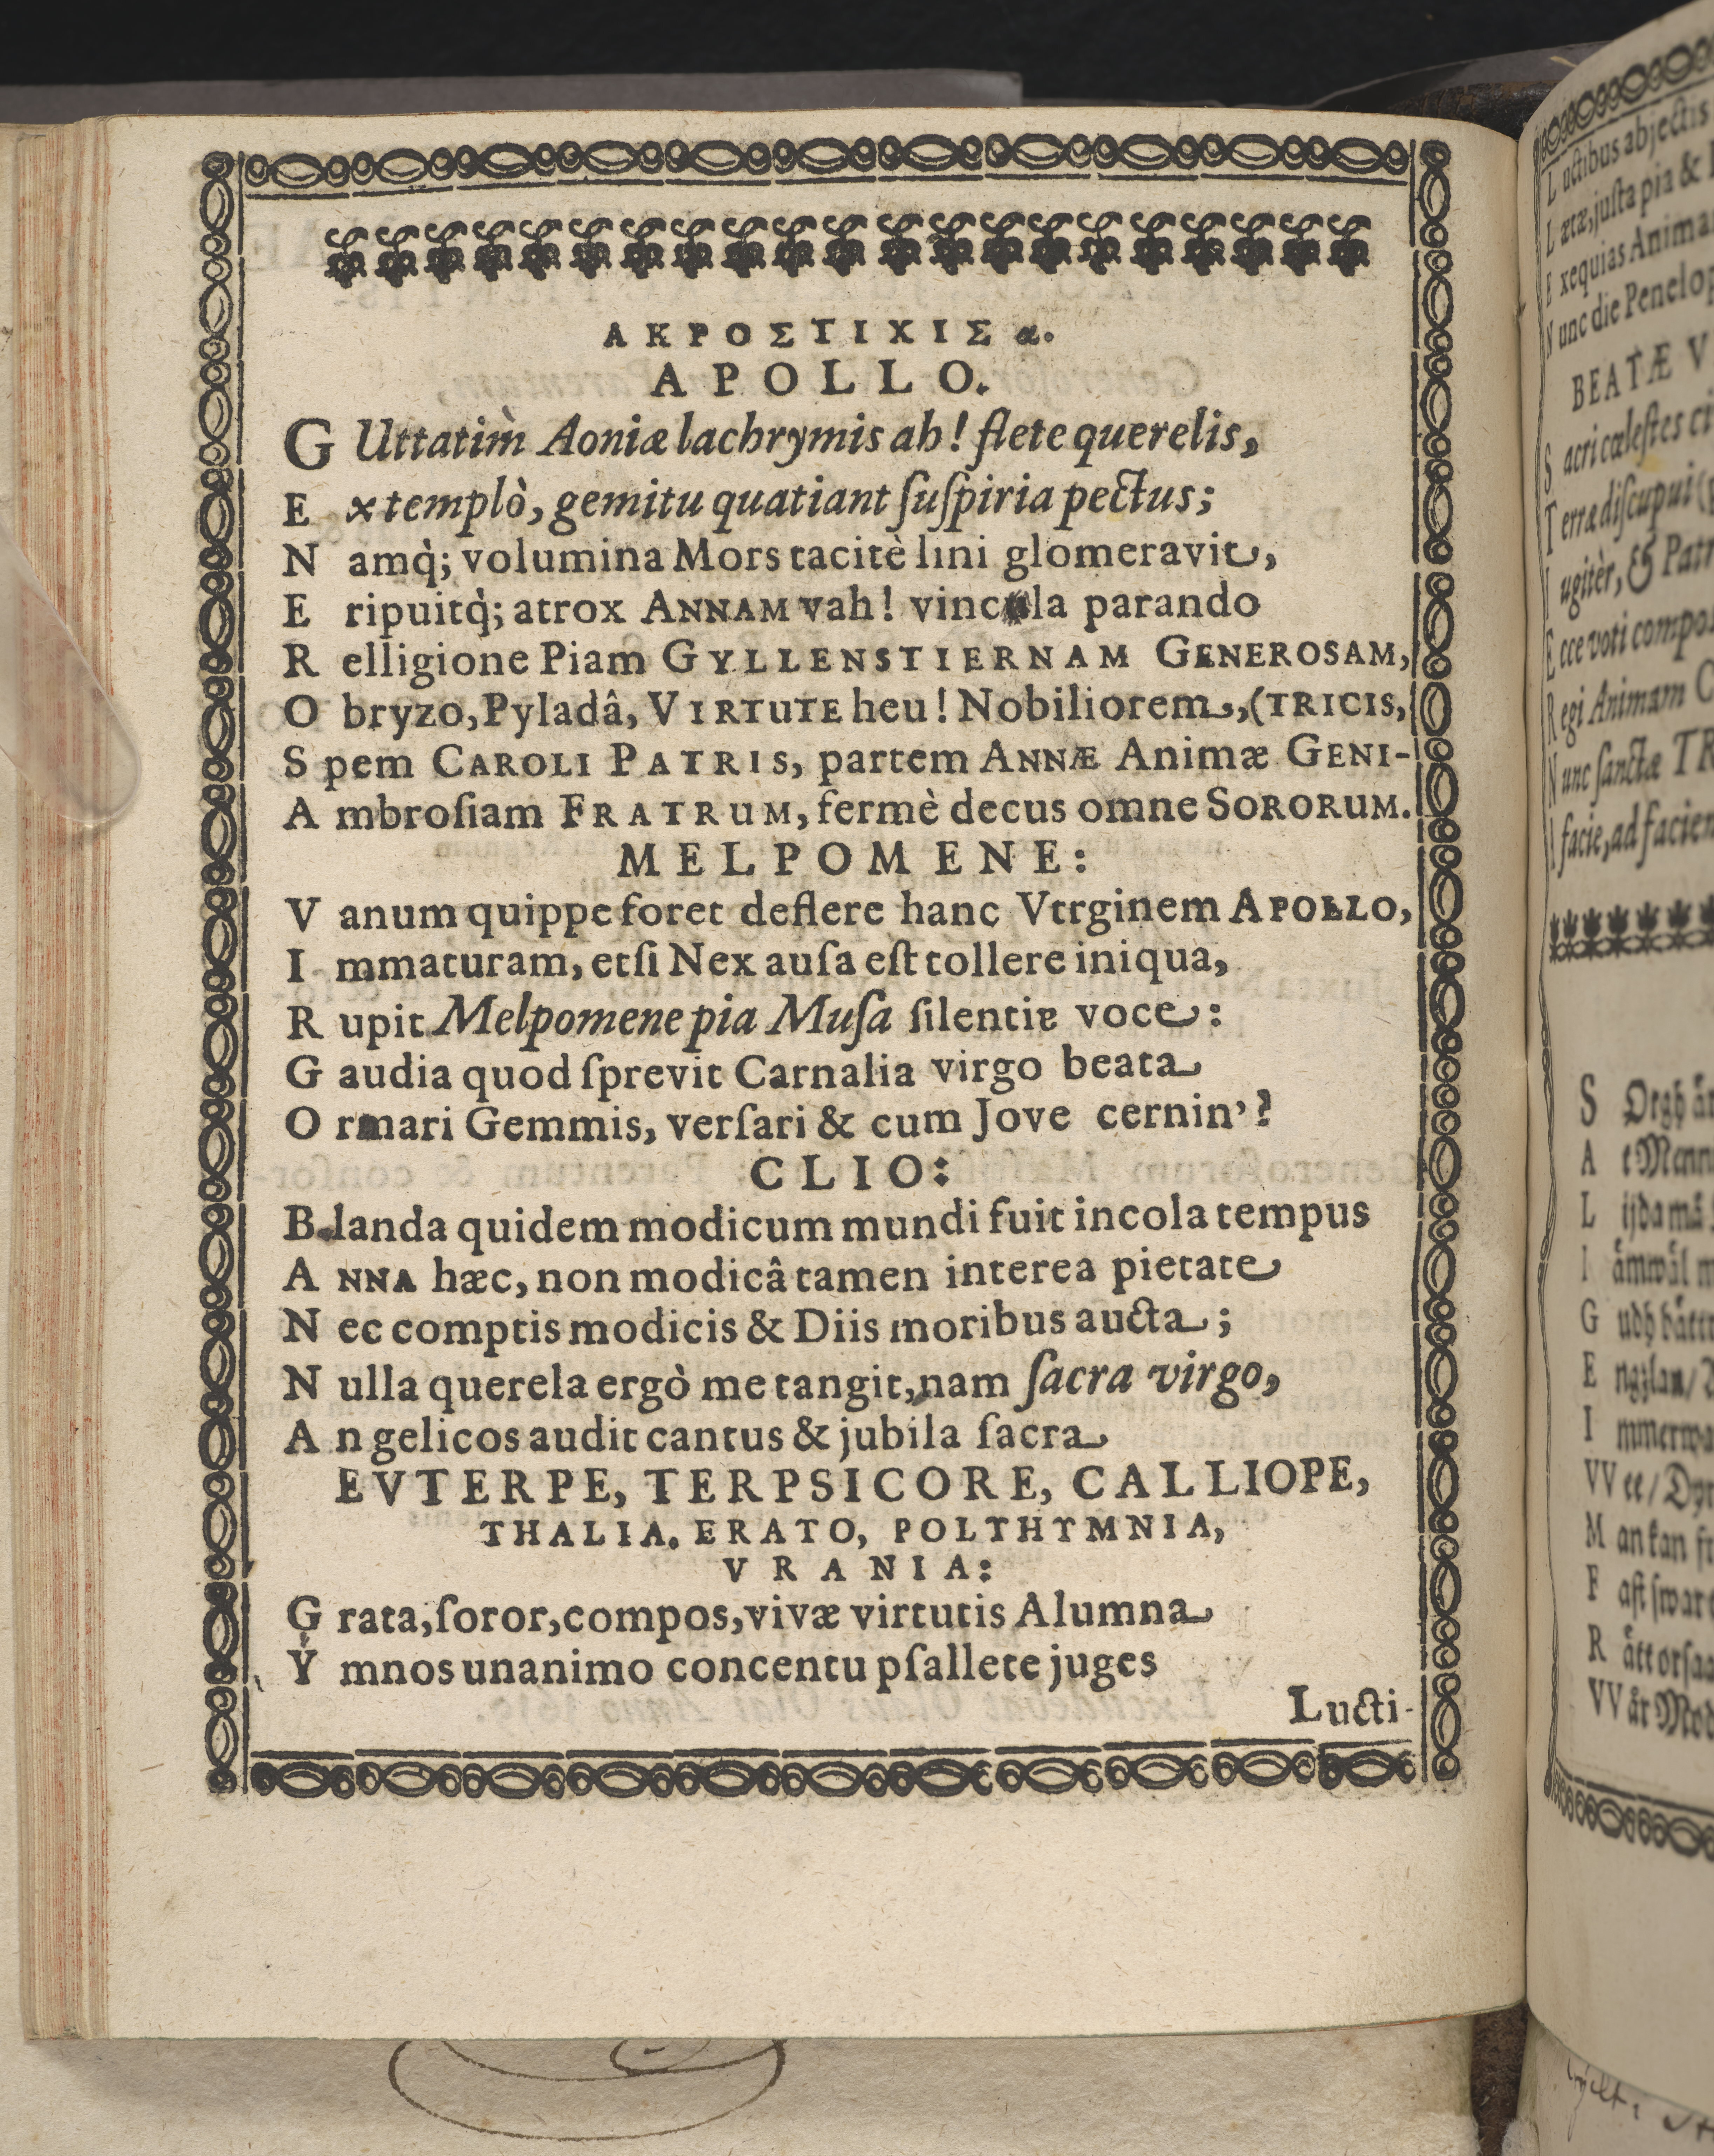 ΑΚΡΟΣΤΙΧΙΣ α.
APOLLO.
GUttatim̀ Aoniæ lachrymis ah! flete querelis,
Extemplò, gemitu quatiant ſuſpiria pectus;
Namq̀; volumina Mors tacitè lini glomeravit,
Eripuitq̀; atrox ANNAM vah! vincula parando
Relligione Piam GYLLENSTIERNAM GENEROSAM,
Obryzo, Pyladâ, VIRTUTE heu! Nobiliorem, (TRICIS,
Spem CAROLI PATRIS, partem ANNÆ Animæ GENI-
Ambroſiam FRATRUM, fermè decus omne SORORUM.
MELPOMENE:
Vanum quippe foret deflere hanc Vtrginem APOLLO,
Immaturam, etſi Nex auſa eſt tollere iniqua,
Rupit Melpomene pia Muſa ſilentia voce:
Gaudia quod ſprevit Carnalia virgo beata
Ornari Gemmis, verſari & cum Jove cernin'?
CLIO:
Blanda quidem modicum mundi fuit incola tempus
ANNA hæc, non modicâ tamen interea pietate
Nec comptis modicis & Diis moribus aucta;
Nulla querela ergò me tangit, nam ſacra virgo,
An gelicos audit cantus & jubila ſacra
EVTERPE, TERPSICORE, CALLIOPE,
THALIA. ERATO, POLTHTMNIA,
VRANIA:
Grata, ſoror, compos, vivæ virtutis Alumna
Ymnos unanimo concentu pſallete juges
Lucti-
Luctibus abjectis
Lætæ, juſta pia &
Exequias
Nunc die
BEATÆ V
Sacri cœleſtes
Terræ
ugitèr, & Patr
Ecce voti
Regi Animam
Nunc ſanctæ TR
I facie, ad
S
A
L
I
G
E
I
VV
M
F
R
VV